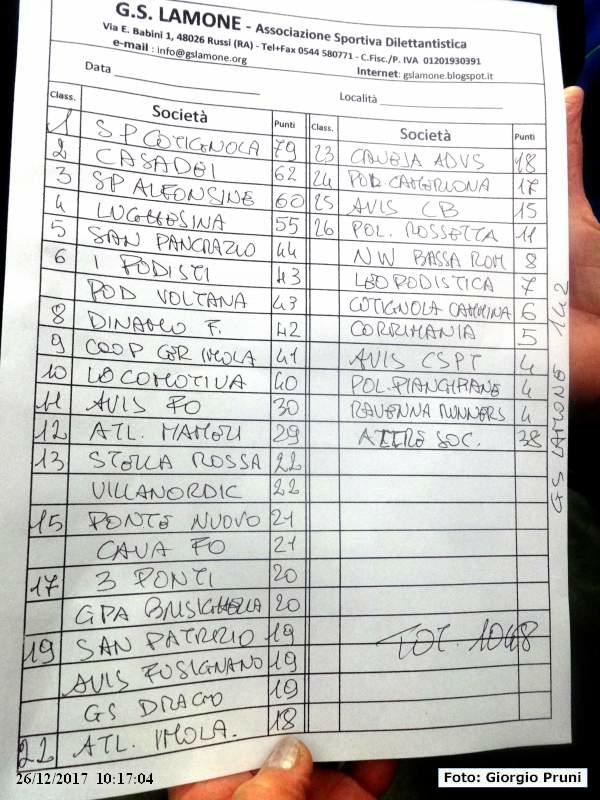 G.S. LAMONE - Associazione Sportiva Dilettantistica
Via E. Babini 1, 48026 Russi (RA) - Tel+Fax 0544 580771 - C.Fisc./P. IVA 01201930391
e-mail : info@gslamone.org Internet: gslamone.blogspot.it
Data Località
Class. Società Punti Class. Società Punti
1 SP COTIGNOLA 79 23 CAVEJA ADVS 18
2 CASADEI 62 24 POD. CATERIONA 17
3 SP ALFONSINE 60 25 AVIS CB 15
4 LUGHESINA 55 26 POL. ROSSETTA 11
5 SAN PANCRAZIO 44 NW BASSA ROM 8
6 I PODISTI 43 LEOPODISTICA 7
POD VOLTANA 43 COTIGNOLA CAMMINA 6
8 DINAMO F. 42 CORRIMANIA 5
9 COOP CER IMOLA 41 AVIS CSPT 4
10 LOCOMOTIVA 40 POL. PIANGIPANE 4
11 AVIS FO 30 RAVENNA RUNNERS 4
12 ATL. MAMELI 29 ALTRE SOC. 38
13 STELLA ROSSA 22
VILLANORDIC 22
15 PONTE NUOVO 21
CAVA FO 21
17 3 PONTI 20
GPA BRISIGHELLA 20
19 SAN PATRIZIO 19 TOT. 1048
AVIS FUSIGNANO 19
GS DRAGO 19
22 ATL. IMOLA. 18
GS LAMONE 142
26/12/2017 10:17:04
Foto: Giorgio Pruni